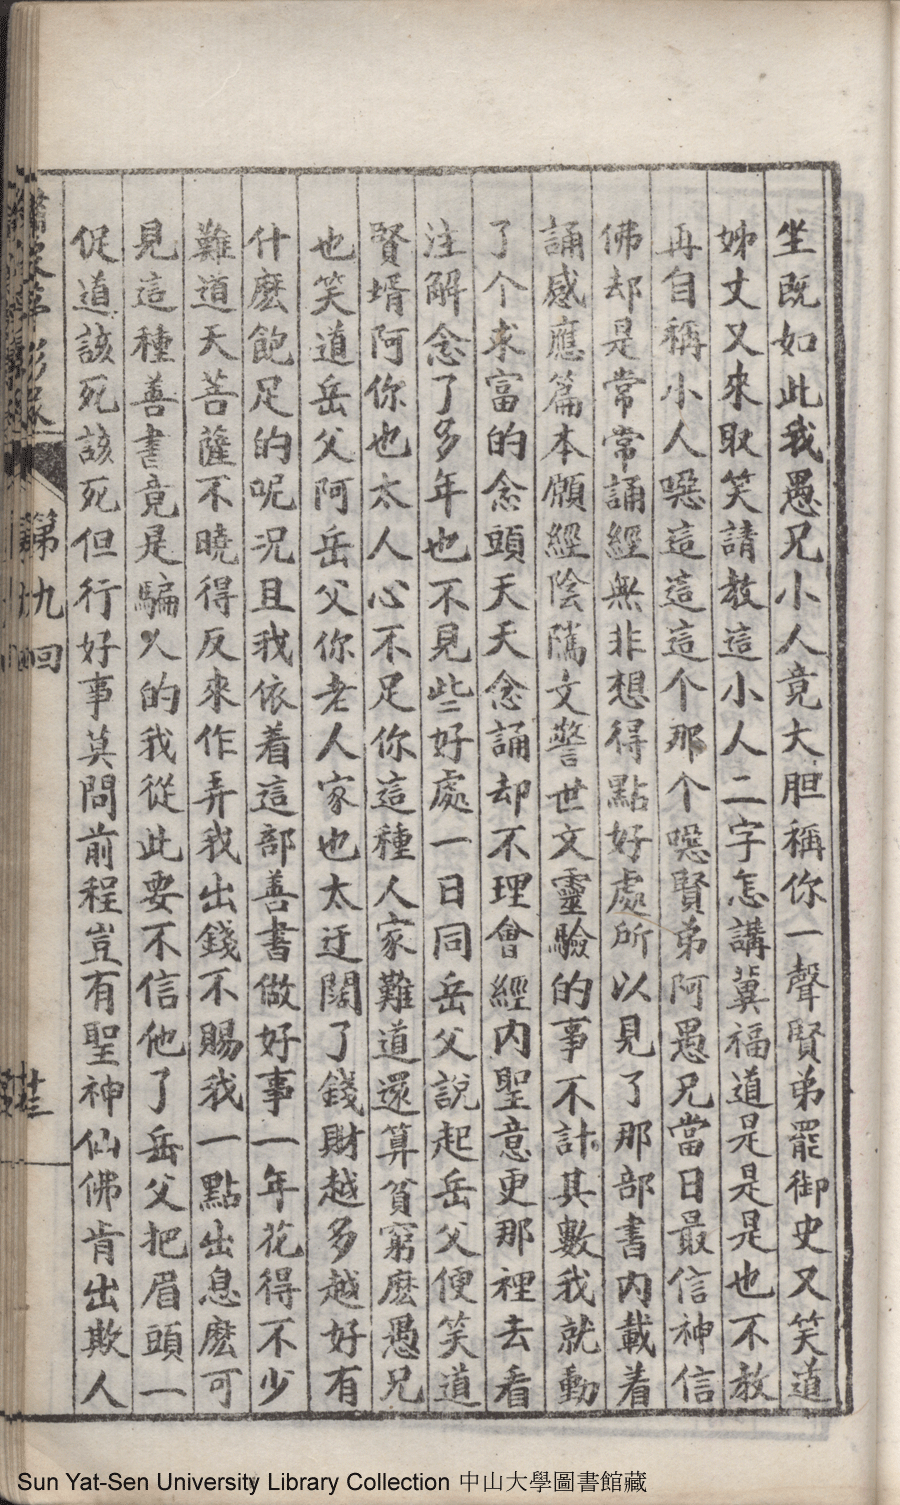 坐既如此我愚兄小人竟大胆稱你一聲賢弟罷御史又笑道
姊丈又來取笑請教這小人二字怎講冀福道是是是也不敢
再自稱小人噁這這這个那个噁賢弟阿愚兄當日最信神信
佛却是常常誦經無非想得點好處所以見了那部書内載着
誦感應篇本願經陰隲文警世文靈驗的事不計其數我就動
了个求富的念頭天天念誦却不理會經内聖意更那裡去看
注解念了多年也不見些好處一日同岳父說起岳父便笑道
賢壻阿你也太人心不足你這種人家難道還算貧窮麽愚兄
也笑道岳父阿岳父你老人家也太迂闊了錢財越多越好有
什麽飽足的呢况且我依着這部善書做好事一年花得不少
難道天菩薩不曉得反來作弄我出錢不賜我一點出息麽可
見這種善書竟是騙人的我從此要不信他了岳父把眉頭一
促道該死該死但行好事莫問前程豈有聖神仙佛肯出欺人
第九回
Sun Yat-Sen University Library Collection 中山大學圖書館藏